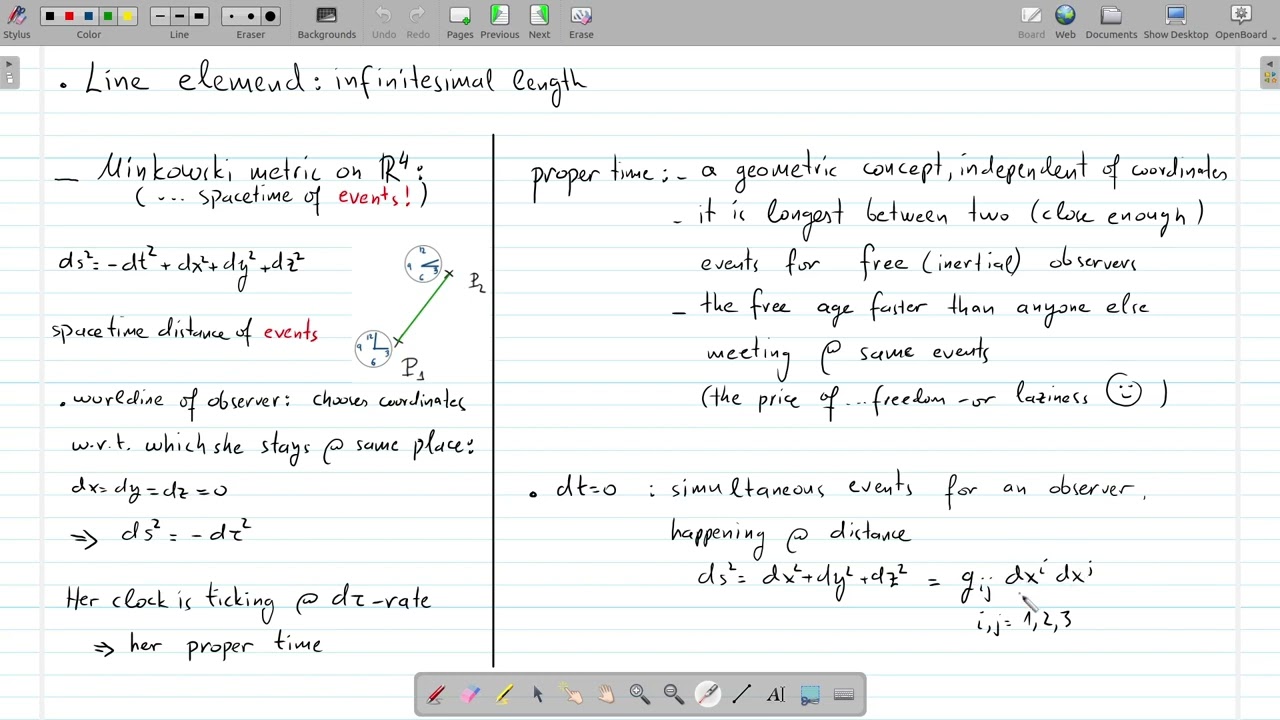 Stylus
Color
Line
Eraser
Backgrounds
Undo
Redo
Pages
Previous
Next
Erase
Board
Web
Documents
Show Desktop
OpenBoard
. Line elemend: infinitesimal length
— Minkowski metric on ℝ⁴:
(... spacetime of events!)
ds² = -dt² + dx² + dy² + dz²
12
9 3
6
P₂
spacetime distance of events
12
9 3
6
P₁
. worldline of observer: chooses coordinates
w.r.t. which she stays @ same place:
dx = dy = dz = 0
⇒ ds² = - dτ²
Her clock is ticking @ dτ-rate
⇒ her proper time
proper time: - a geometric concept, independent of coordinates
- it is longest between two (close enough)
events for free (inertial) observers
- the free age faster than anyone else
meeting @ same events
(the price of ... freedom - or laziness ☺ )
. dt=0 : simultaneous events for an observer,
happening @ distance
ds² = dx² + dy² + dz² = gᵢⱼ dxⁱ dxʲ
i,j = 1,2,3
AI